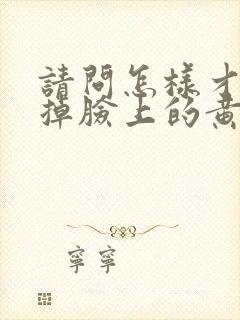 請問怎樣才
掉臉上的黃
寧寧